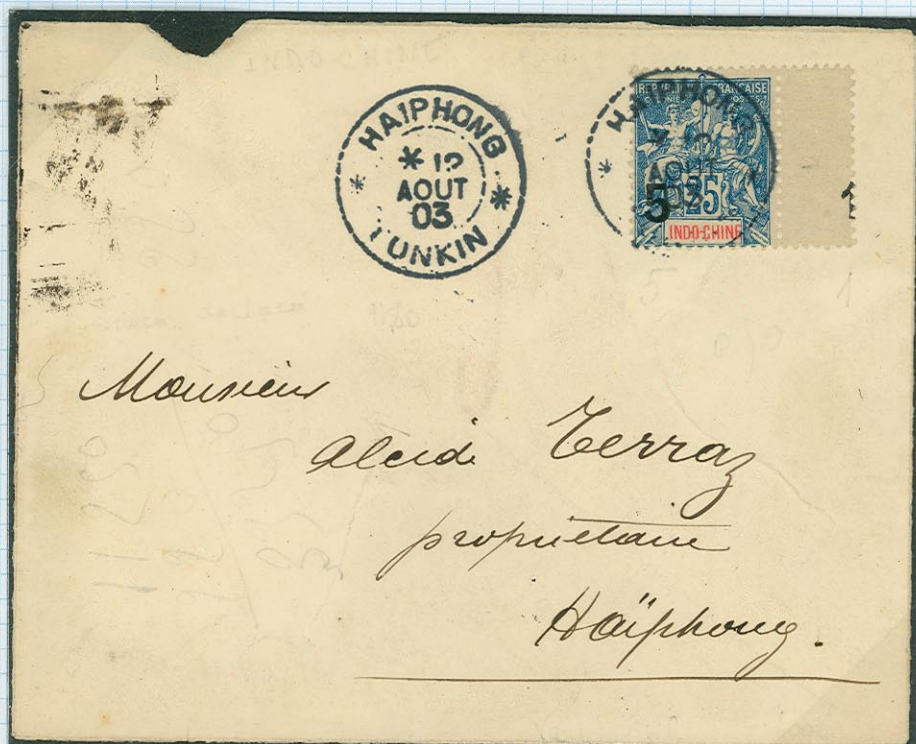 HAIPHONG
* 12
AOUT
03
TONKIN
REPUBLIQUE FRANÇAISE
HAIPHONG
AOUT
03
5
25
INDO-CHINE
Monsieur
Alcide Terraz
propriétaire
Haïphong.